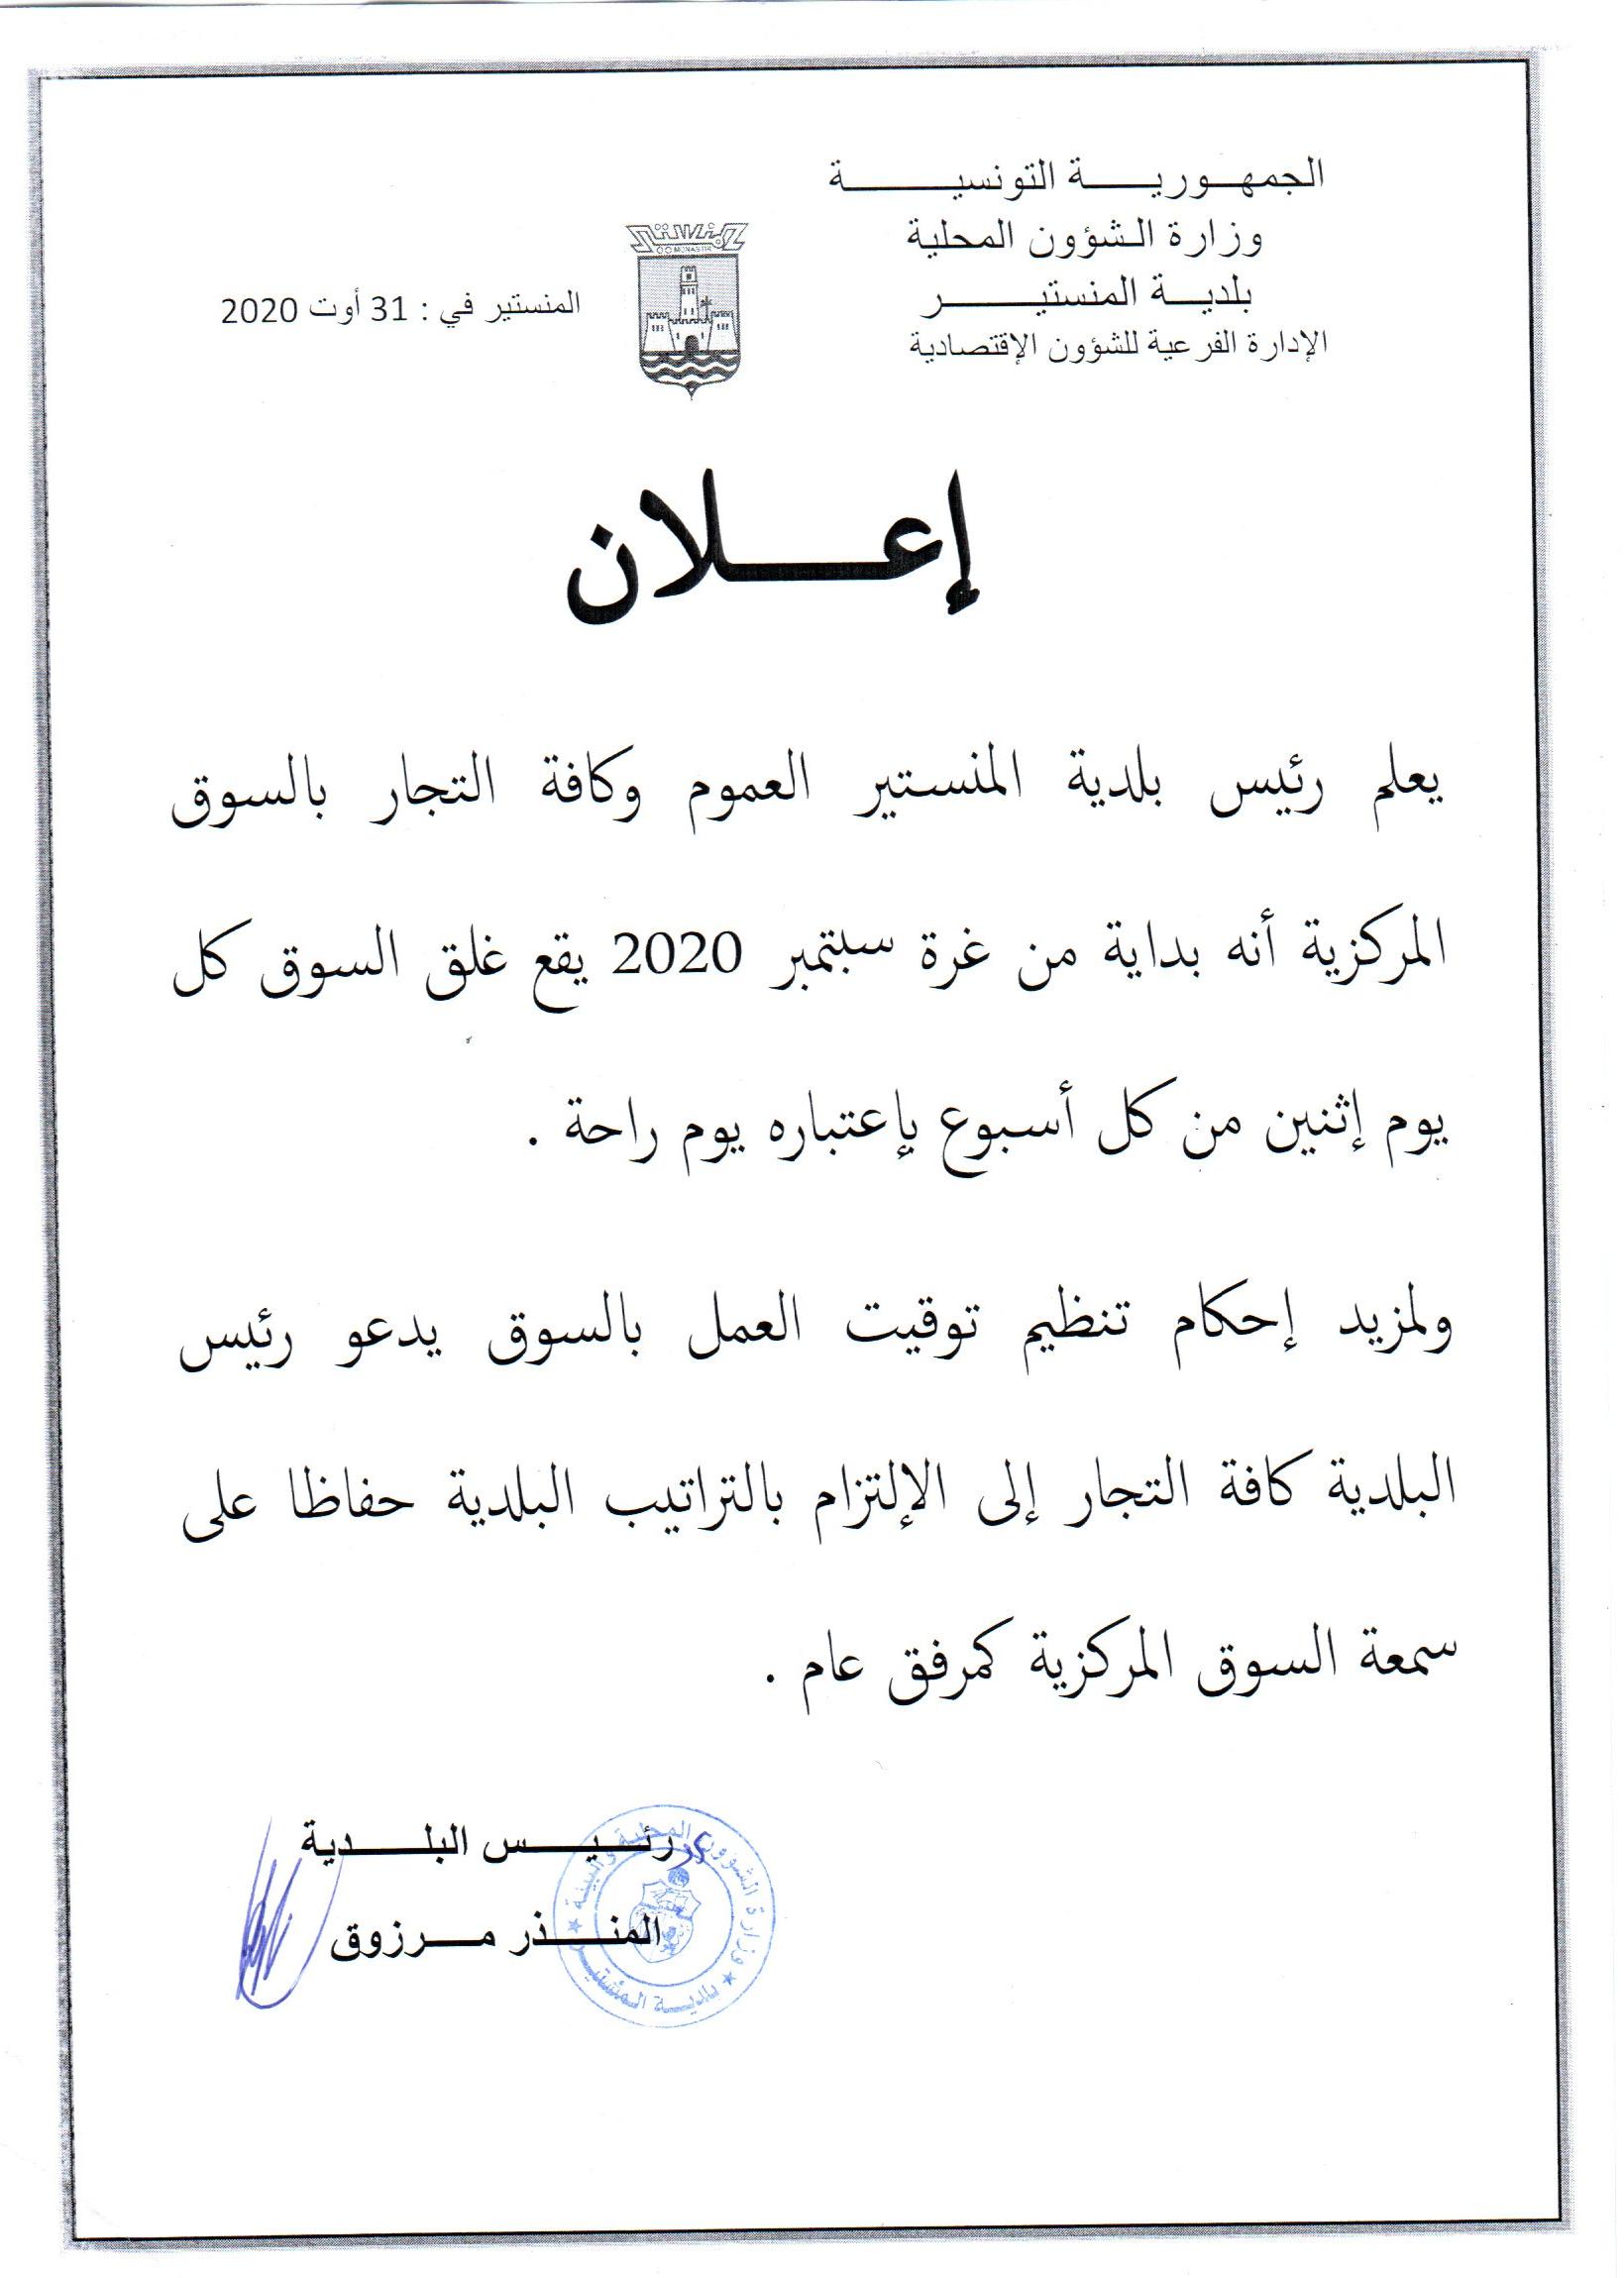 الجمهورية التونسية
وزارة الشؤون المحلية
بلدية المنستير
الإدارة الفرعية للشؤون الإقتصادية
المنستير
MONASTIR
المنستير في : 31 أوت 2020
إعلان
يعلم رئيس بلدية المنستير العموم وكافة التجار بالسوق
المركزية أنه بداية من غرة سبتمبر 2020 يقع غلق السوق كل
يوم إثنين من كل أسبوع بإعتباره يوم راحة .
ولمزيد إحكام تنظيم توقيت العمل بالسوق يدعو رئيس
البلدية كافة التجار إلى الإلتزام بالتراتيب البلدية حفاظا على
سمعة السوق المركزية كمرفق عام .
رئيس البلدية
المنذر مرزوق
وزارة الشؤون المحلية والبيئة
بلدية المنستير